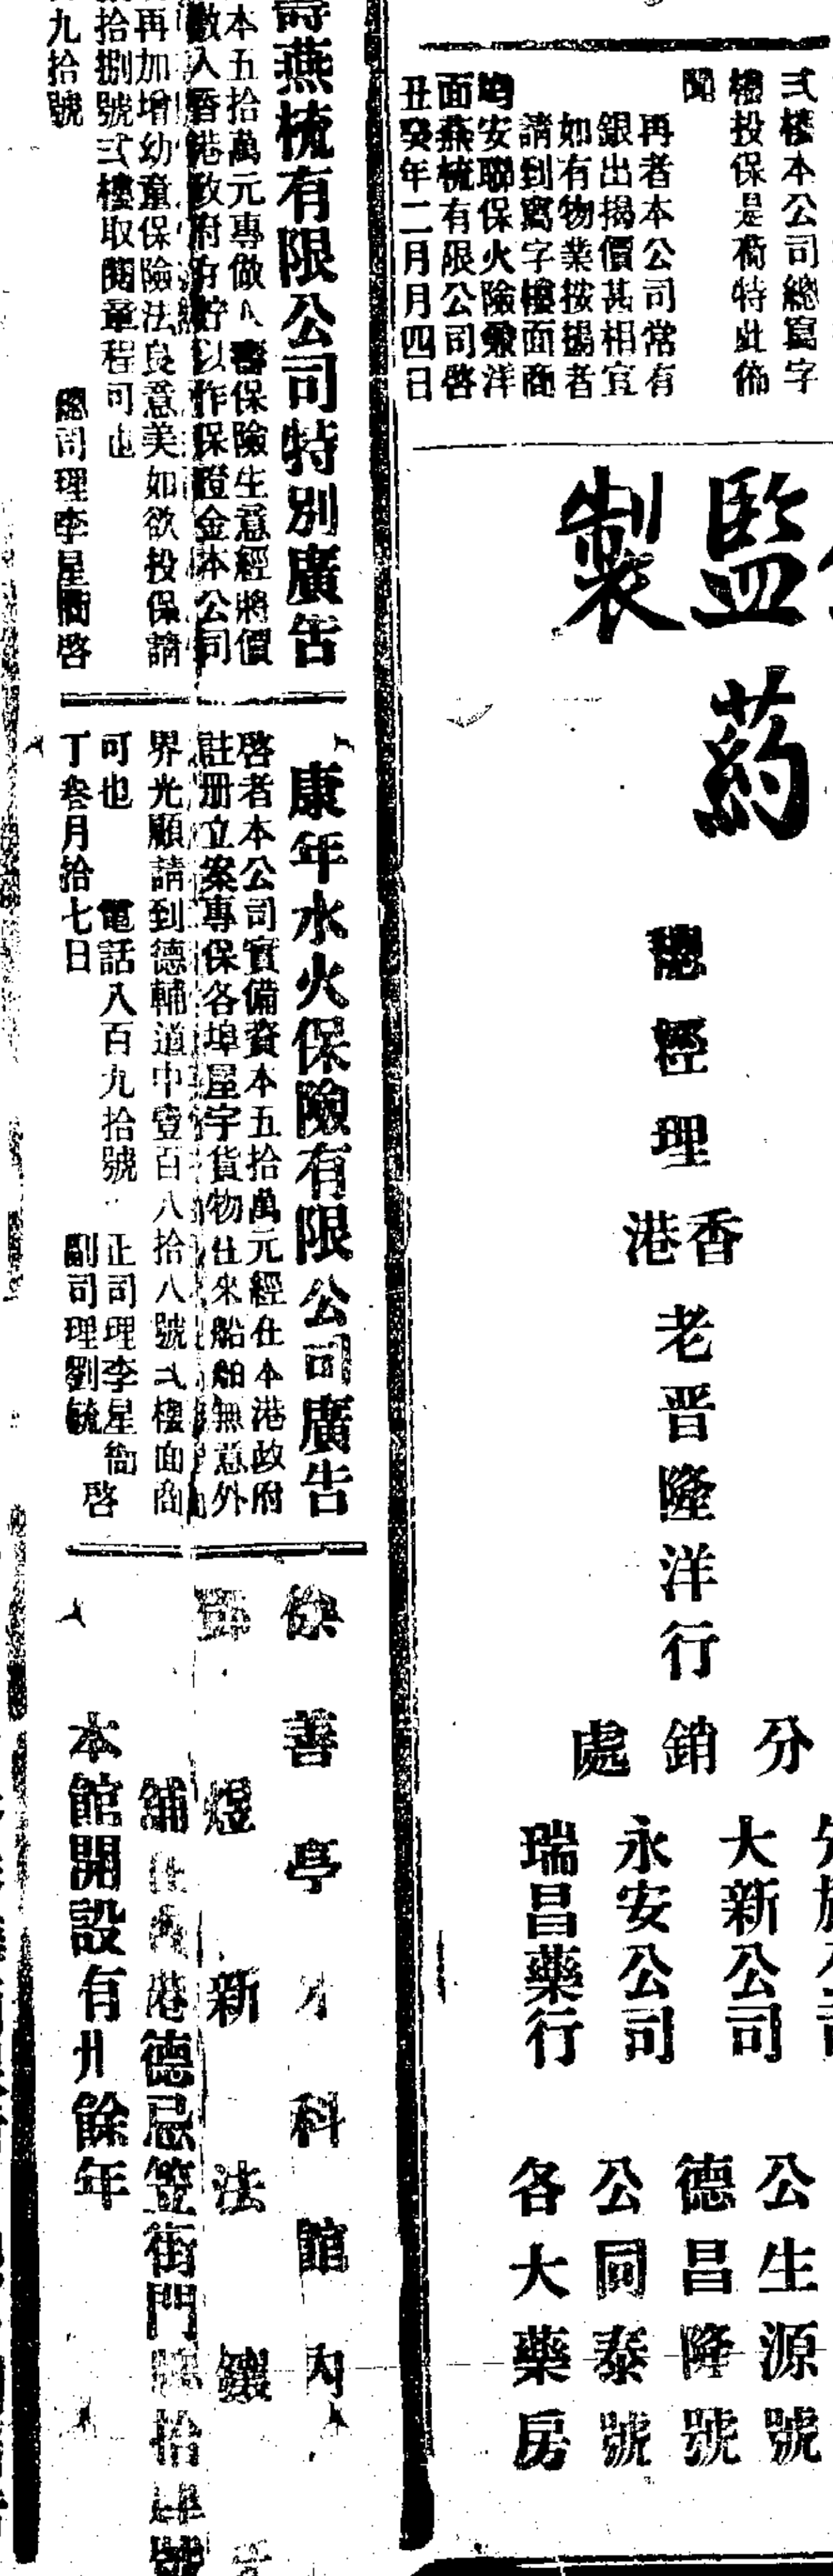 弍樓本公司總寫字
樓投保是荷特此佈
聞
再者本公司常有
銀出揭價甚相宜
如有物業按揭者
請到寫字樓面商
安聯保火險洋
面燕梳有限公司啓
丑癸年二月月四日
監製
葯
總經理
香港
老晋隆洋行
分銷處
大新公司
永安公司
瑞昌藥行
公生源號
德昌隆號
公同泰號
各大藥房
壽燕梳有限公司特別廣告
本五拾萬元專做人壽保險生意經將價
繳入香港政府存貯以作保證金本公司
再加增幼童保險法良意美如欲投保請
拾捌號弍樓取閱章程可也
九拾號
總司理李星衢啓
康年水火保險有限公司廣告
啓者本公司實備資本五拾萬元經在本港政府
註册立案專保各埠屋宇貨物往來船舶無意外
界光顧請到德輔道中壹百八拾八號弍樓面商
可也 電話八百九拾號 正司理李星衢
丁叁月拾七日 副司理劉毓 啓
徐善亭牙科館內
煜新法鑲
舖在香港德忌笠街門牌拾肆號
本館開設有卅餘年